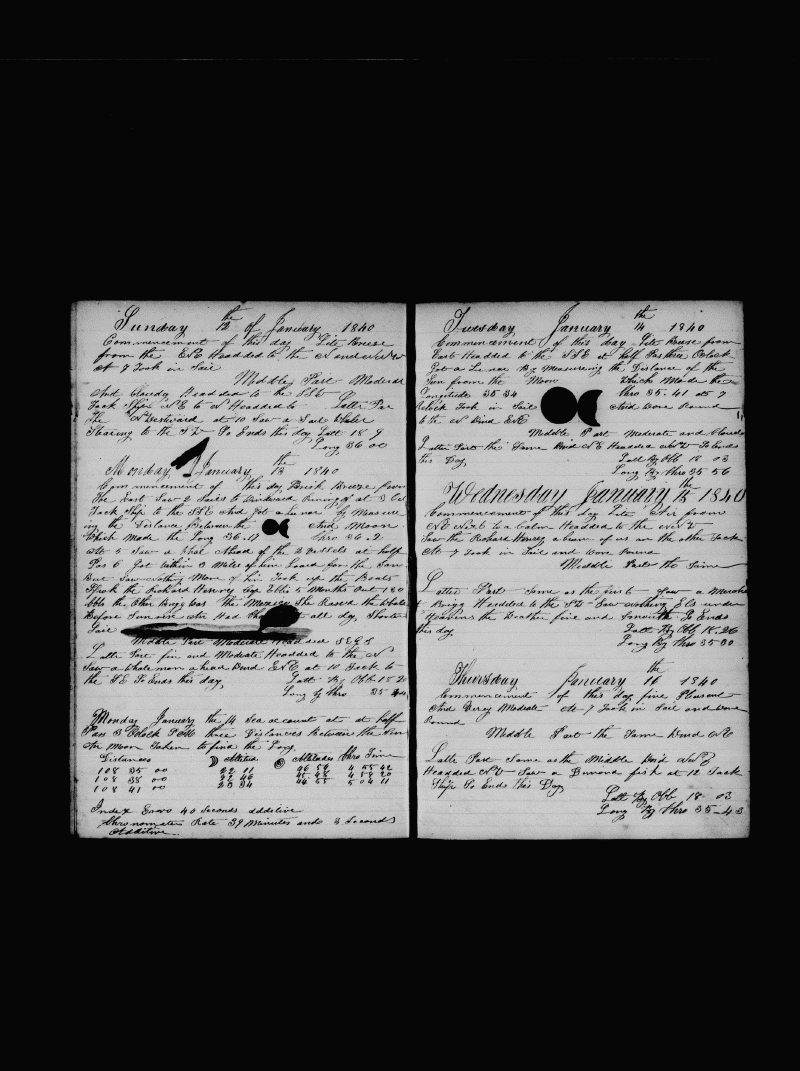 Sunday the 12 of January 1840
Commencement of this day Lite Breese
from the ENE Headded to the N
At 7 Took in Sail
Middle Part Moderate
And Cloudy Headded to the
Tack Ship NE to N Headded to Latter Par
the N Westward at 10 Saw a Sail Whaler
Stearing to the SW So Ends this day Latt 18 9
Long 36 00
Monday January the 13 1840
Commencement of this day Brisk Breese from
the East Saw 2 Sails to Windward at 3
Tack Ship to the SSE And Got a Lunar by Measure
ing the Distance Between the And Moon
Which Made the Long 36.17 Chro 36.2
At 5 Saw a Whale Ahead of the 2 Vessels at half
Pas 6 Got within 3 Miles of him Loard for the
But Saw nothing More of him Took up the Boats
Spock the Richard Henry Cap 5 Months Out 180
bbls the Other Brigg was the She Raised the Whale
Before Sunrise An Had all day, Short
Sail
Middle Part Moderate Headded SESE
Latter Part fin and Moderate Headded to the N
Saw a Whaleman ahead Wind ENE at 10 Tack to
the SE So Ends this day, Latt By Obb 18 20
Long by Chro 35
Monday January the 14 Sea account at at half
Pass 3 Oclock Took three Distances Between the Sun
An Moon Taken to find the Long
Distances Altitud Altitudes Chro Time
108 35 00 22 11 46 4 55 42
108 38 00 22 45 48 4 59 20
108 41 00 23 34 44 55 5 04 11
Index Error 40 Seconds additive
Chronometer Rate 39 Minutes and 3 Seconds
Additive
Tuesday January the 14 1840
Commencement of this day Lite Breese from
East Headded to the SSE at half Past three Oclock
Got a Lunar By Measureing the Distance of the
Sun from the Moon Which Made the
Longitude 35 34 Chro 35.41 at 7
Oclock Took in Sail And Wore Round
to the N Wind ENE
Middle Part Moderate and Cloudy
Latter Part the Same Wind NE Headded NNW So Ends
this Day Latt By Obb 18 03
Long By Chro 35 56
Wednesday January the 15 1840
Commencement of this day Lite Air from
NE Next to a Calm Headded to the NNW
Saw the Richard Henry a beam of us an the other Tack
At 7 Took in Sail and Wore Round
Middle Parts the Same
Latter Part Same as the first Saw a March
t Brigg Headded to the SW Saw nothing Els under
Heavens the Weather fine and Smooth So Ends
this day Latt By Obb 18.26
Long By Chro 35 30
Thursday January the 16 1840
Commencement of this day fine Plesant
And Verey Moderate At 7 Took in Sail and Wore
Round
Middle Part the Same Wind NE
Latte Part Same as the Middle Wind NNE
Headded NW Saw a Dimond fish at 12 Tack
Ship So Ends this Day
Latt By Obb 18 03
Long By Chro 35-43